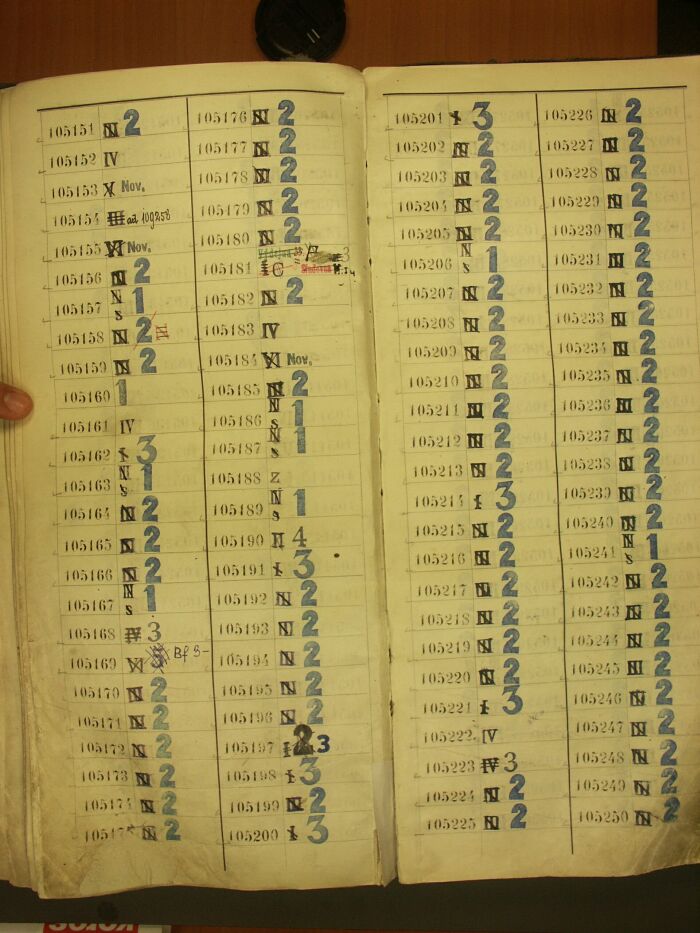 105151 N 2
105152 IV
105153 V Nov.
105154 III ad 109258
105155 VI Nov.
105156 N 2
105157 N s 1
105158 N 2 VI
105159 N 2
105160 1
105161 IV
105162 I 3
105163 N s 1
105164 N 2
105165 N 2
105166 N 2
105167 N s 1
105168 IV 3
105169 VI Bf 3-
105170 N 2
105171 N 2
105172 N 2
105173 N 2
105174 N 2
105175 N 2
105176 N 2
105177 N 2
105178 N 2
105179 N 2
105180 N 2
105181 I C 3
105182 N 2
105183 IV
105184 XI Nov.
105185 N 2
105186 N s 1
105187 N s 1
105188 Z
105189 N s 1
105190 II 4
105191 I 3
105192 N 2
105193 N 2
105194 N 2
105195 N 2
105196 N 2
105197 I 2 3
105198 I 3
105199 N 2
105200 I 3
105201 I 3
105202 N 2
105203 N 2
105204 N 2
105205 N 2
105206 N s 1
105207 N 2
105208 N 2
105209 N 2
105210 N 2
105211 N 2
105212 N 2
105213 N 2
105214 I 3
105215 N 2
105216 N 2
105217 N 2
105218 N 2
105219 N 2
105220 N 2
105221 I 3
105222 IV
105223 IV 3
105224 N 2
105225 N 2
105226 N 2
105227 N 2
105228 N 2
105229 N 2
105230 N 2
105231 N 2
105232 N 2
105233 N 2
105234 N 2
105235 N 2
105236 N 2
105237 N 2
105238 N 2
105239 N 2
105240 N 2
105241 N s 1
105242 N 2
105243 N 2
105244 N 2
105245 N 2
105246 N 2
105247 N 2
105248 N 2
105249 N 2
105250 N 2